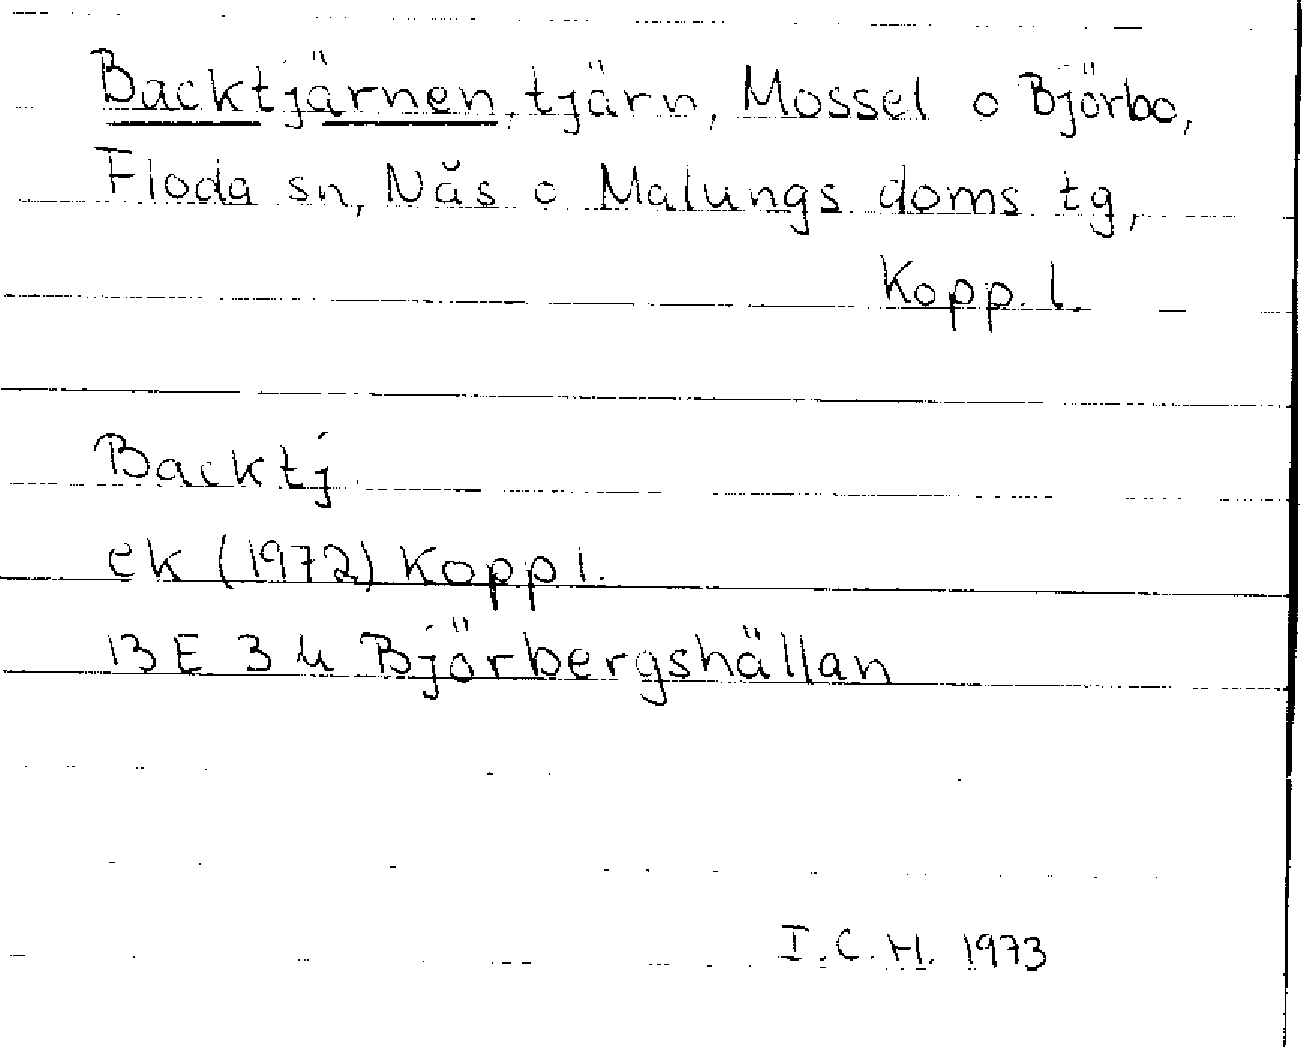 Backtjärnen, tjärn, Mossel o Björbo,
Floda sn, Nås o Malungs doms tg,
Kopp. l.
Backtj
ek (1972) Kopp l.
13 E 3 h Björbergshällan
I.C.H. 1973